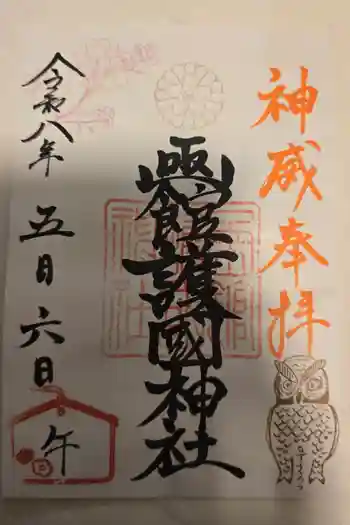 神威奉拝
凾館護國神社
令和八年五月六日
午